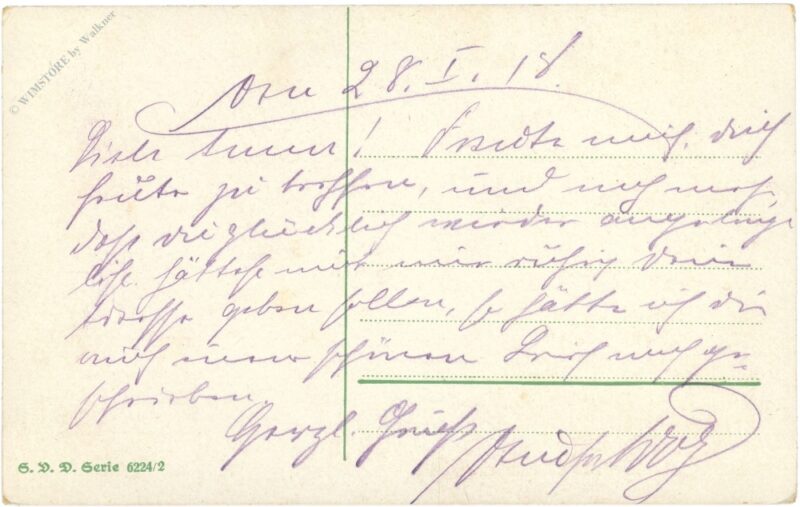 © WIMSTORE by Walkner
28. I. 18.
Freute mich, dich
heute zu treffen, und noch mehr,
daß du glücklich wieder
hättest mir nur ruhig deine
Adresse geben sollen, so hätte ich dir
auch einen schönen Brief nach ge-
schrieben.
Herzl. Grüße
S. V. D. Serie 6224/2